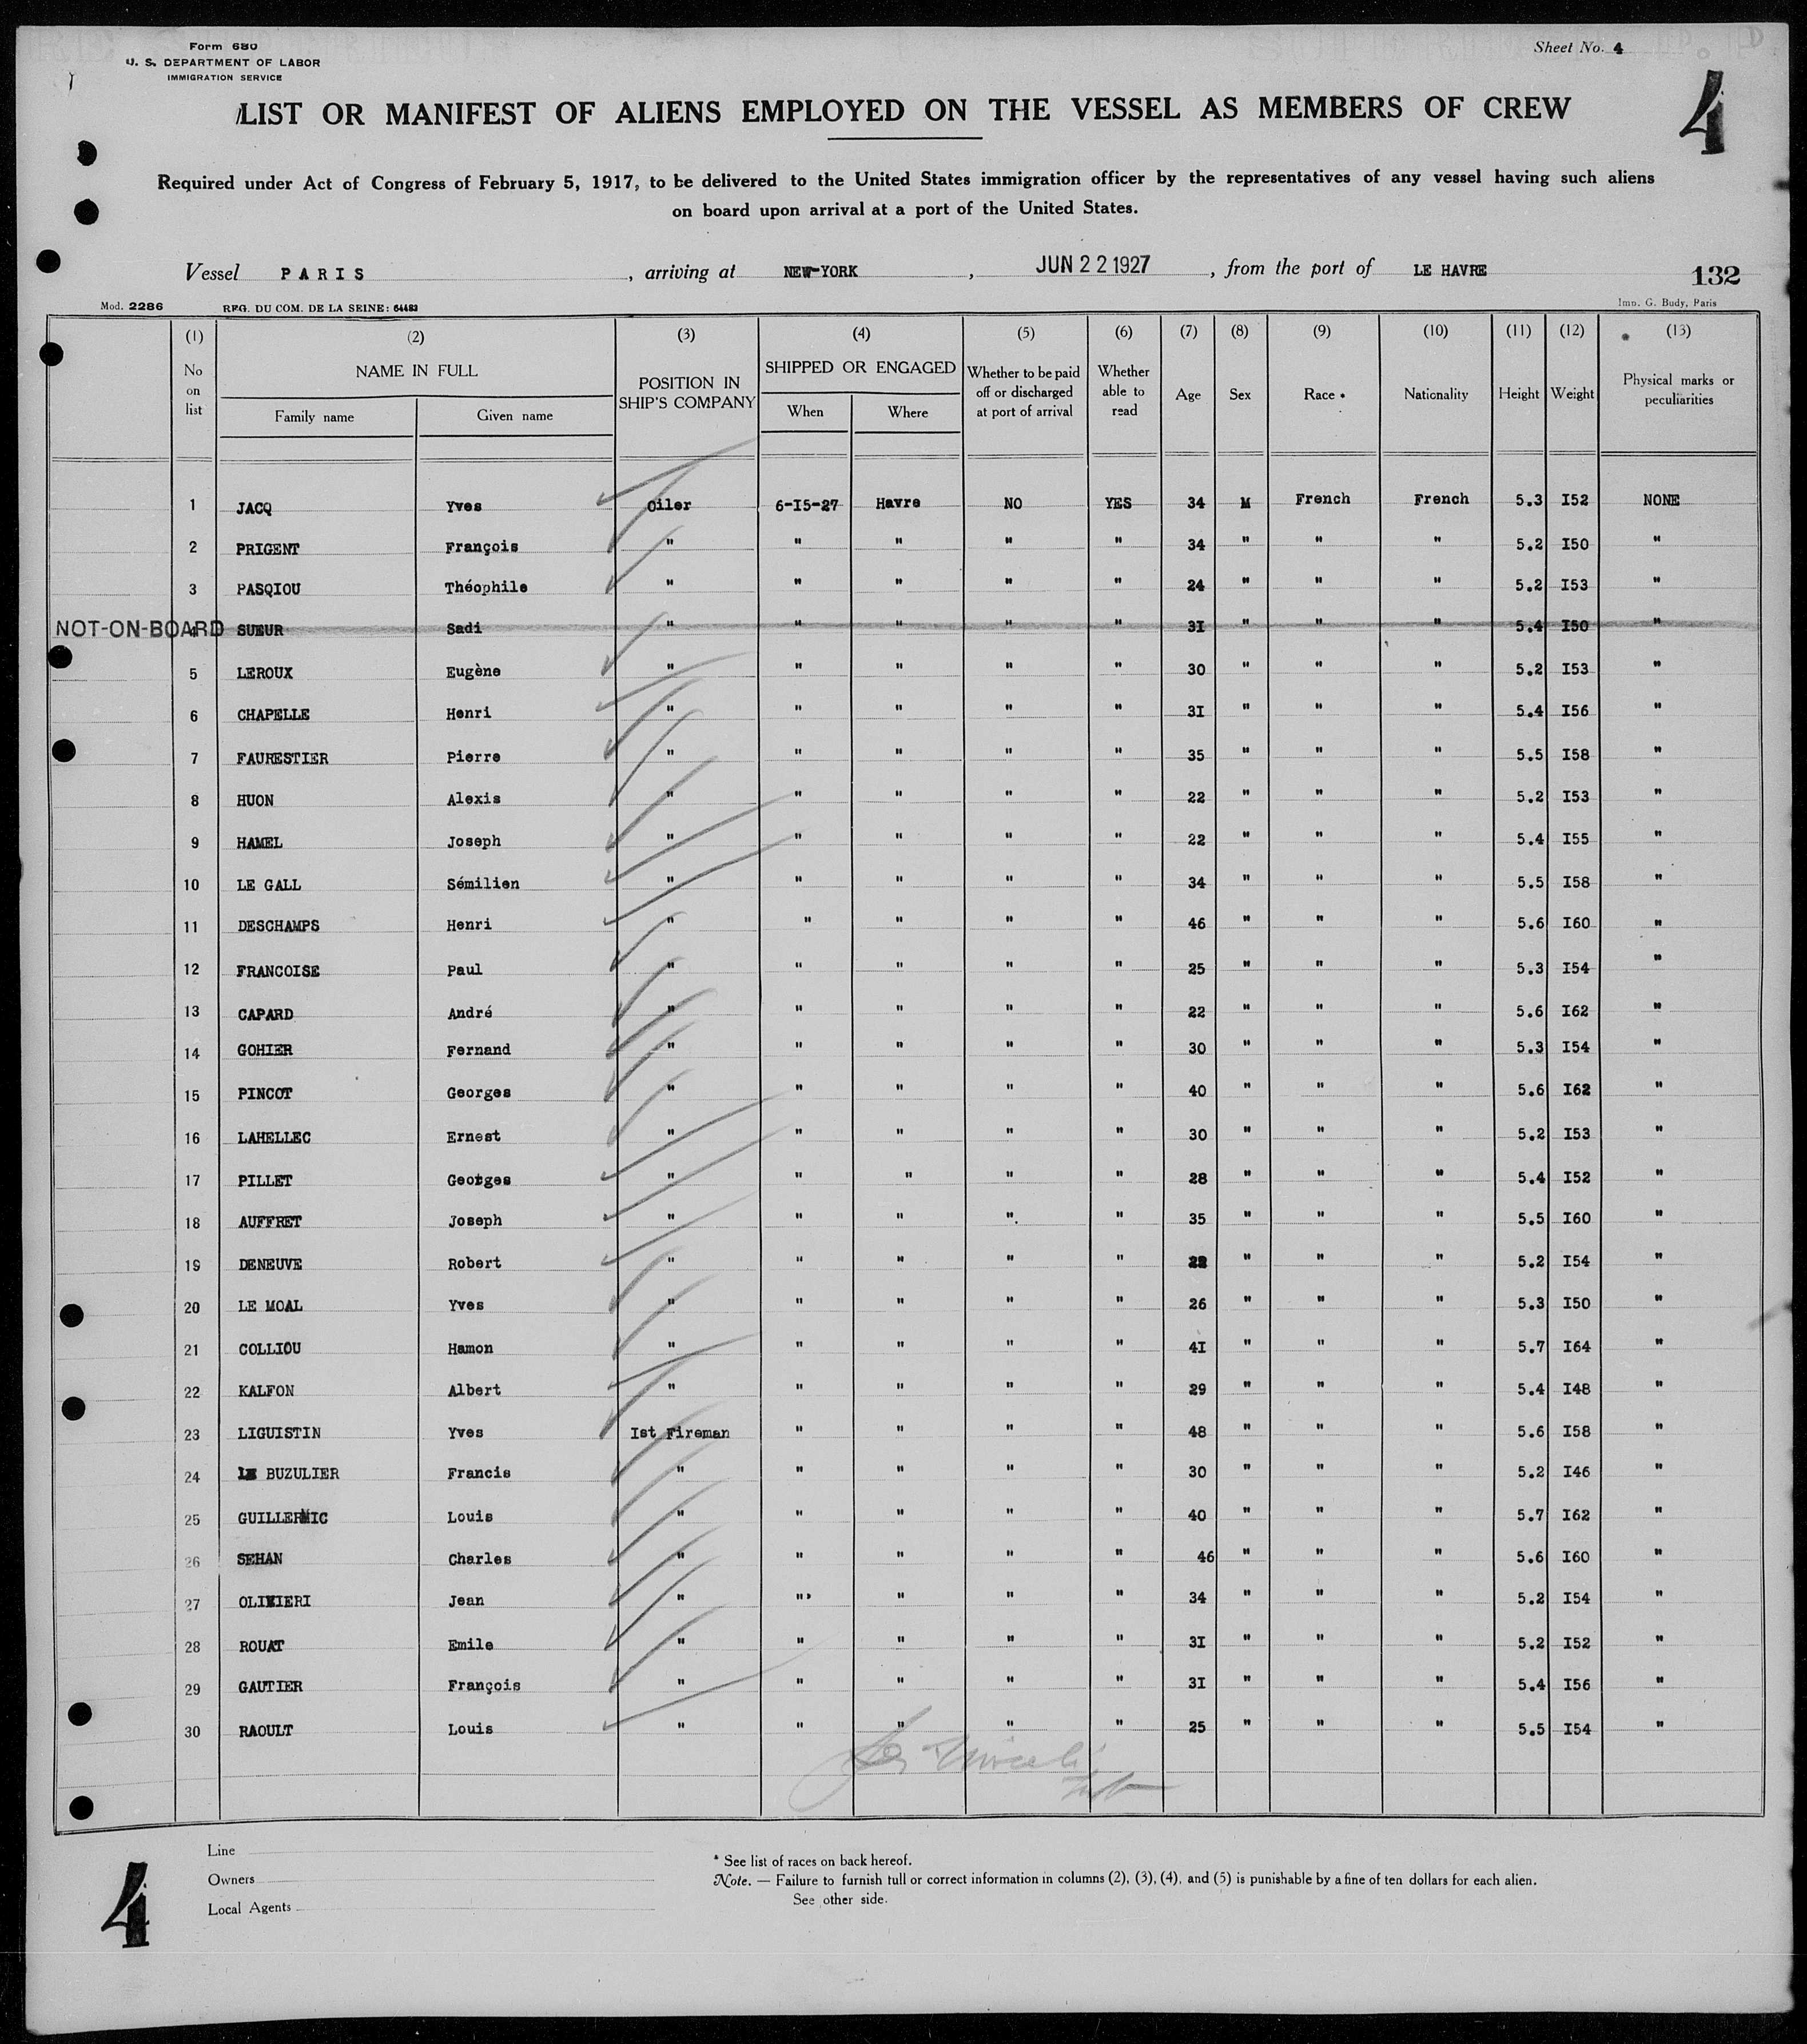 Form 680
U. S. DEPARTMENT OF LABOR
IMMIGRATION SERVICE
Sheet No. 4
4
LIST OR MANIFEST OF ALIENS EMPLOYED ON THE VESSEL AS MEMBERS OF CREW
Required under Act of Congress of February 5, 1917, to be delivered to the United States immigration officer by the representatives of any vessel having such aliens
on board upon arrival at a port of the United States.
Vessel PARIS, arriving at NEW-YORK, JUN 22 1927, from the port of LE HAVRE 132
Mod. 2286 REG. DU COM. DE LA SEINE: 64483 Imp. G. Budy, Paris
(1) (2) (3) (4) (5) (6) (7) (8) (9) (10) (11) (12) (13)
No on list NAME IN FULL Family name Given name POSITION IN SHIP'S COMPANY SHIPPED OR ENGAGED When Where Whether to be paid off or discharged at port of arrival Whether able to read Age Sex Race * Nationality Height Weight Physical marks or peculiarities
1 JACQ Yves Oiler 6-I5-27 Havre NO YES 34 M French French 5.3 I52 NONE
2 PRIGENT François " " " " " 34 " " " 5.2 I50 "
3 PASQIOU Théophile " " " " " 24 " " " 5.2 I53 "
NOT-ON-BOARD 4 SUEUR Sadi " " " " " 3I " " " 5.4 I50 "
5 LEROUX Eugène " " " " " 30 " " " 5.2 I53 "
6 CHAPELLE Henri " " " " " 3I " " " 5.4 I56 "
7 FAURESTIER Pierre " " " " " 35 " " " 5.5 I58 "
8 HUON Alexis " " " " " 22 " " " 5.2 I53 "
9 HAMEL Joseph " " " " " 22 " " " 5.4 I55 "
10 LE GALL Sémilien " " " " " 34 " " " 5.5 I58 "
11 DESCHAMPS Henri " " " " " 46 " " " 5.6 I60 "
12 FRANCOISE Paul " " " " " 25 " " " 5.3 I54 "
13 CAPARD André " " " " " 22 " " " 5.6 I62 "
14 GOHIER Fernand " " " " " 30 " " " 5.3 I54 "
15 PINCOT Georges " " " " " 40 " " " 5.6 I62 "
16 LAHELLEC Ernest " " " " " 30 " " " 5.2 I53 "
17 PILLET Georges " " " " " 28 " " " 5.4 I52 "
18 AUFFRET Joseph " " " " " 35 " " " 5.5 I60 "
19 DENEUVE Robert " " " " " 22 " " " 5.2 I54 "
20 LE MOAL Yves " " " " " 26 " " " 5.3 I50 "
21 COLLIOU Hamon " " " " " 4I " " " 5.7 I64 "
22 KALFON Albert " " " " " 29 " " " 5.4 I48 "
23 LIGUISTIN Yves Ist Fireman " " " " 48 " " " 5.6 I58 "
24 LE BUZULIER Francis " " " " " 30 " " " 5.2 I46 "
25 GUILLERMIC Louis " " " " " 40 " " " 5.7 I62 "
26 SEHAN Charles " " " " " 46 " " " 5.6 I60 "
27 Jean " " " " " 34 " " " 5.2 I54 "
28 ROUAT Emile " " " " " 3I " " " 5.2 I52 "
29 GAUTIER François " " " " " 3I " " " 5.4 I56 "
30 RAOULT Louis " " " " " 25 " " " 5.5 I54 "
Line
Owners
Local Agents
* See list of races on back hereof.
Note. — Failure to furnish full or correct information in columns (2), (3), (4), and (5) is punishable by a fine of ten dollars for each alien.
See other side.
4